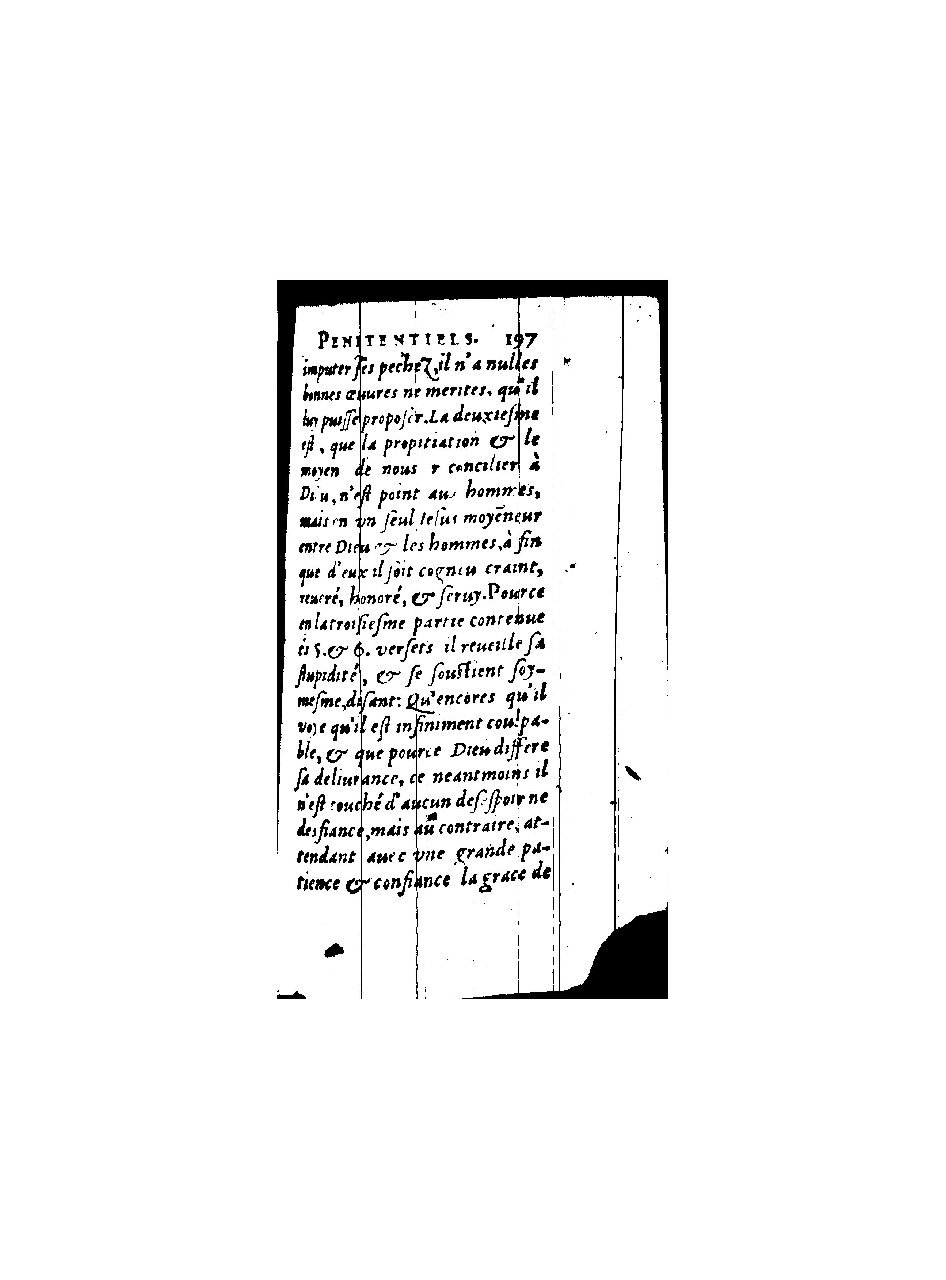 PENITENTIELS. 197
imputer ses pechez, il n'a nulles
bonnes œuures ne merites, qu'il
luy puisse proposer. La deuxiesme
est, que la propitiation & le
moyen de nous r concilier à
Dieu, n'est point aux hommes,
mais en vn seul Iesus moyēneur
entre Dieu & les hommes, à fin
que d'eux il soit cogneu craint,
reueré, honoré, & seruy. Pource
en la troisiesme partie contenue
és 5. & 6. versets il reueille sa
stupidité, & se soustient soy-
mesme, disant: Qu'encores qu'il
voye qu'il est infiniment coulpa-
ble, & que pource Dieu differe
sa deliurance, ce neantmoins il
n'est touché d'aucun desespoir ne
desfiance, mais au contraire, at-
tendant auec vne grande pa-
tience & confiance la grace de